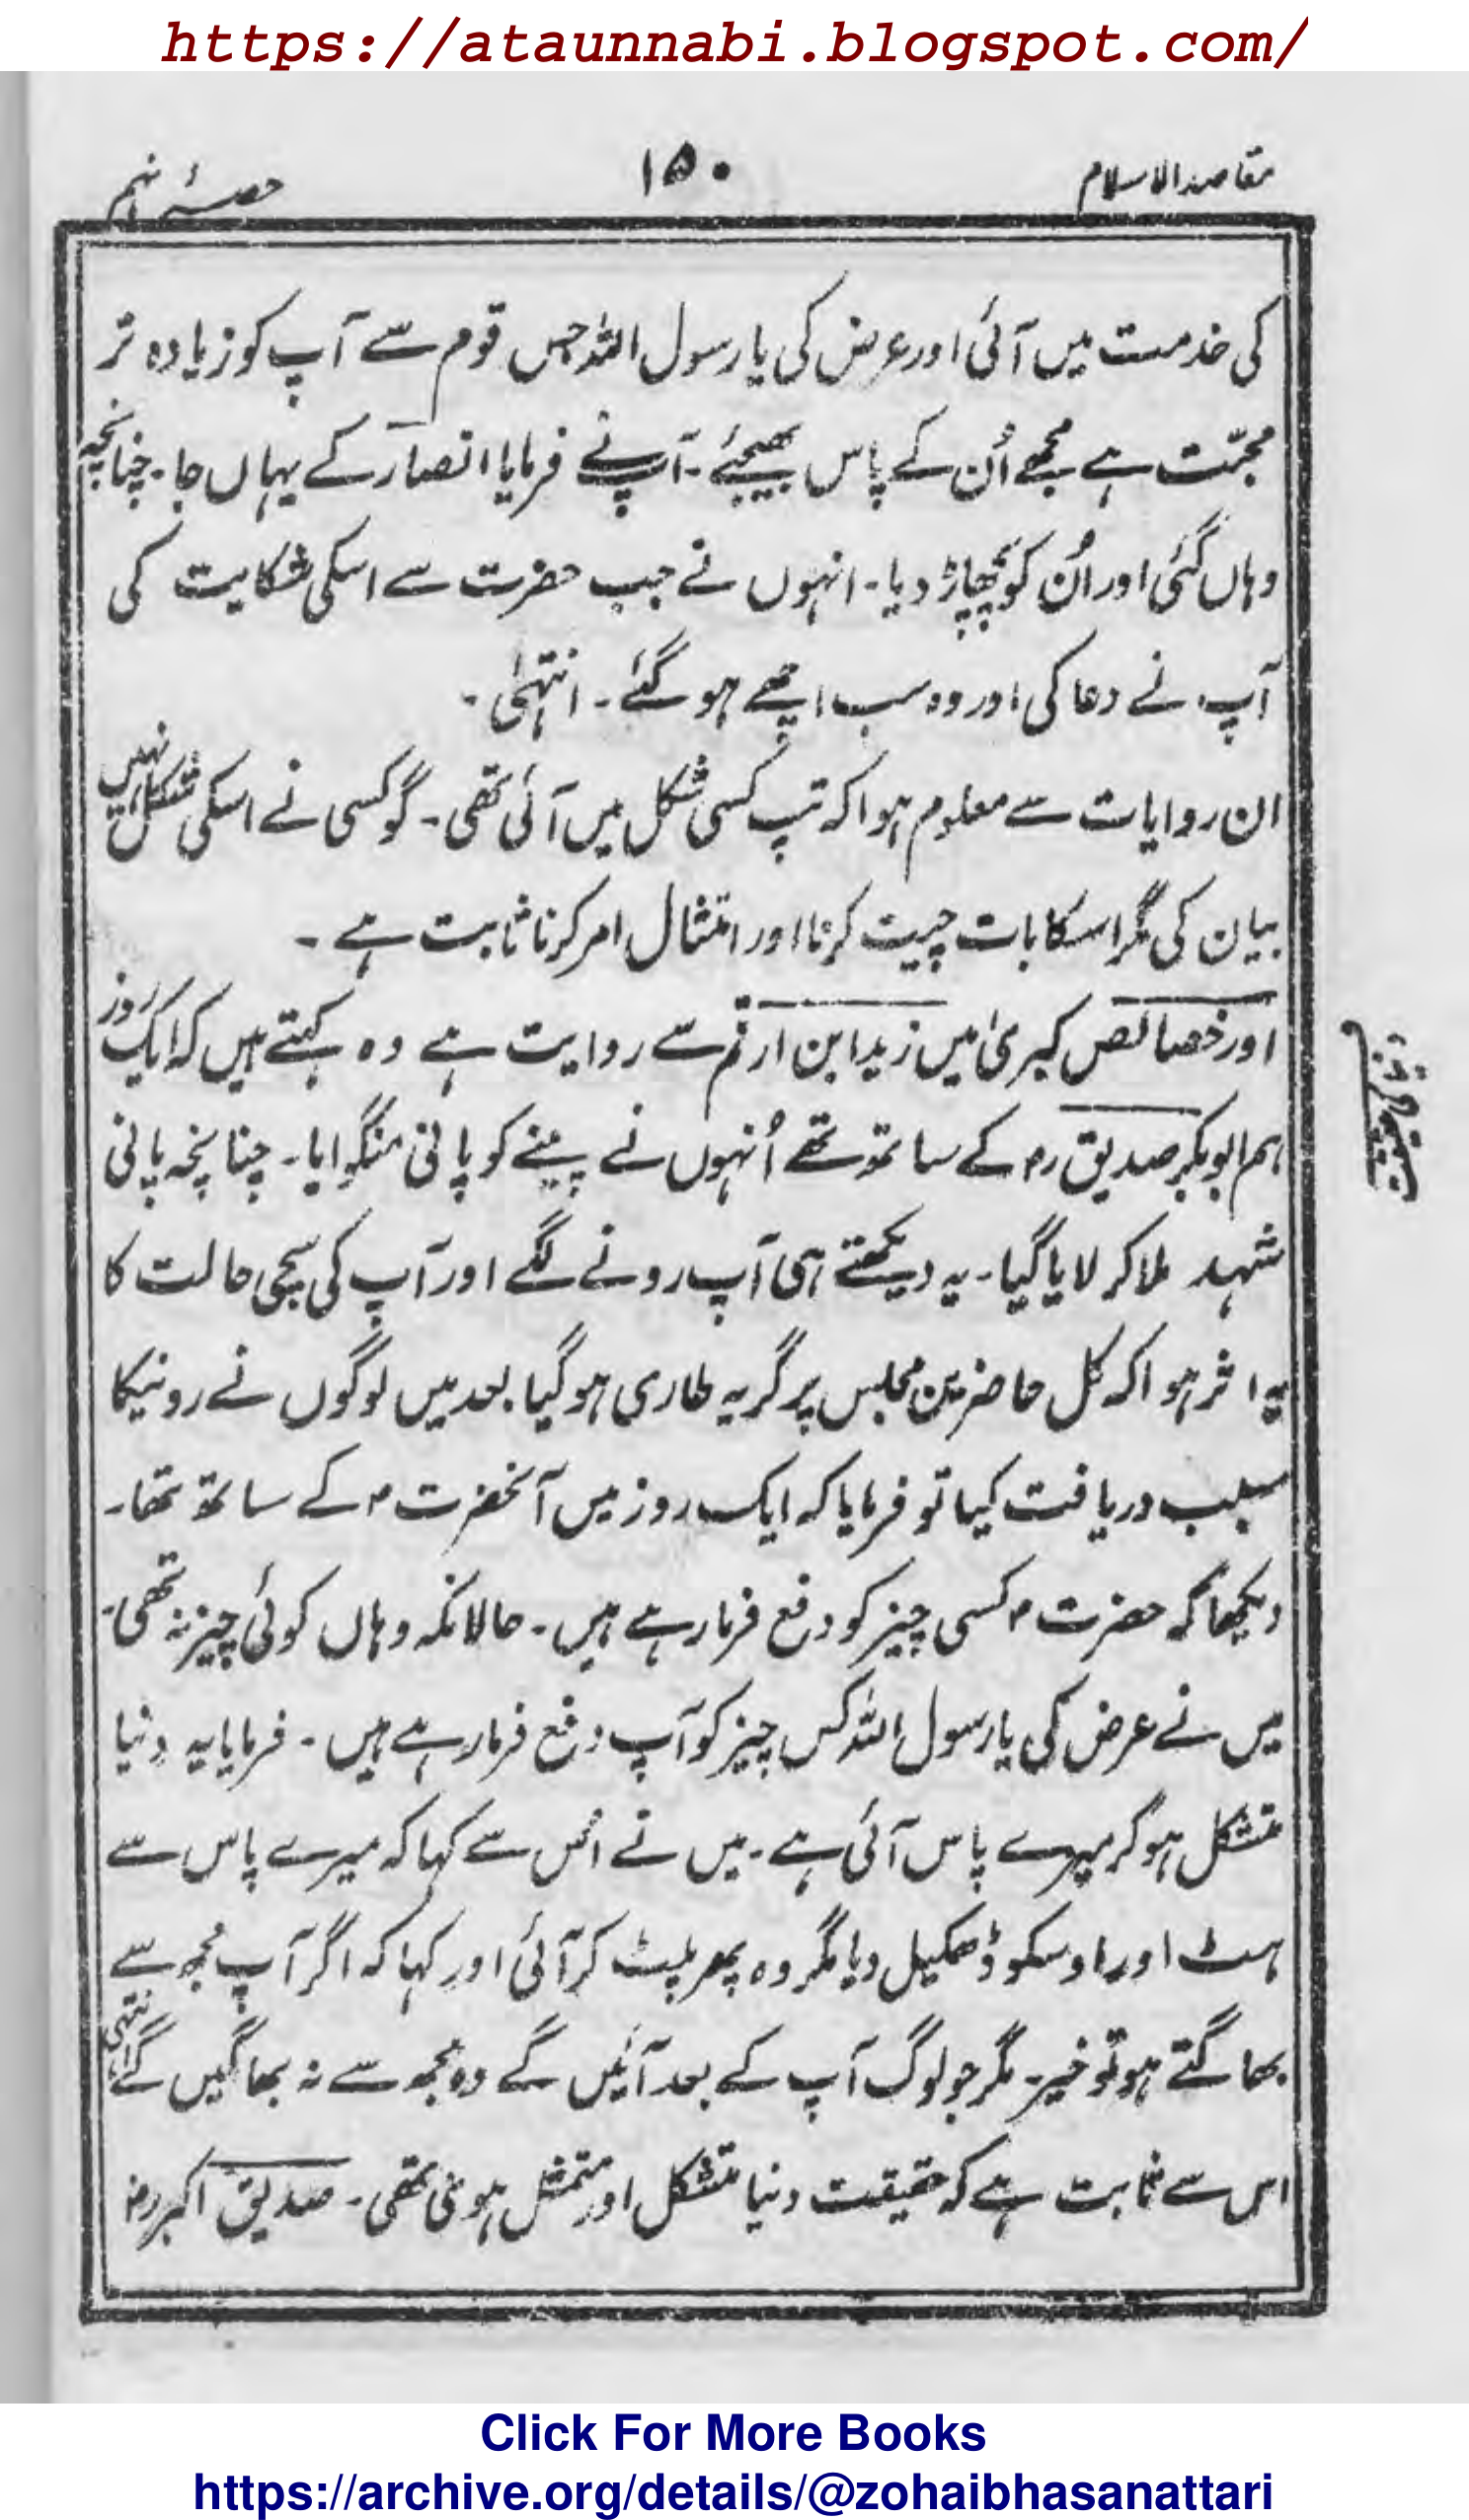 https://ataunnabi.blogspot.com/
مقاصد الاسلام ۱۵۰ حصۂ نہم
کی خدمت میں آئی اور عرض کی یا رسول اللہ جس قوم سے آپ کو زیادہ تر
محبّت ہے مجھے اُن کے پاس بھیجئے ۔ آپ نے فرمایا انصار کے یہاں جا ۔ چنانچہ
وہاں گئی اور اُن کو پچھاڑ دیا ۔ انہوں نے جب حضرت سے اسکی شکایت کی
آپ نے دعا کی اور وہ سب اچھے ہو گئے ۔ انتہیٰ ۔
ان روایات سے معلوم ہوا کہ تپ کسی شکل میں آئی تھی ۔ گو کسی نے اسکی شکل نہیں
بیان کی مگر اسکا بات چیت کرنا اور امتثال امر کرنا ثابت ہے ۔
اور خصائص کبریٰ میں زید ابن ارقم سے روایت ہے وہ کہتے ہیں کہ ایک روز
ہم ابوبکر صدیق رض کے ساتھ تھے اُنہوں نے پینے کو پانی منگوایا ۔ چنانچہ پانی
شہد ملا کر لایا گیا ۔ یہ دیکھتے ہی آپ رونے لگے اور آپ کی سچی حالت کا
یہ اثر ہوا کہ کل حاضرین مجلس پر گریہ طاری ہو گیا بعد میں لوگوں نے رونیکا
سبب دریافت کیا تو فرمایا کہ ایک روز میں آنحضرت م کے ساتھ تھا ۔
دیکھا کہ حضرت م کسی چیز کو دفع فرما رہے ہیں ۔ حالانکہ وہاں کوئی چیز نہ تھی ۔
میں نے عرض کی یا رسول اللہ کس چیز کو آپ دفع فرما رہے ہیں ۔ فرمایا یہ دنیا
متشکل ہو کر میرے پاس آئی ہے ۔ میں نے اُس سے کہا کہ میرے پاس سے
ہٹ اور اوسکو ڈھکیل دیا مگر وہ پھر پلٹ کر آئی اور کہا کہ اگر آپ مجھ سے
بھاگتے ہو تو خیر ۔ مگر جو لوگ آپ کے بعد آئیں گے وہ مجھ سے نہ بھاگیں گے انتہیٰ
اس سے ثابت ہے کہ حقیقت دنیا متشکل اور متمثل ہوئی تھی ۔ صدیق اکبر رض
Click For More Books
https://archive.org/details/@zohaibhasanattari